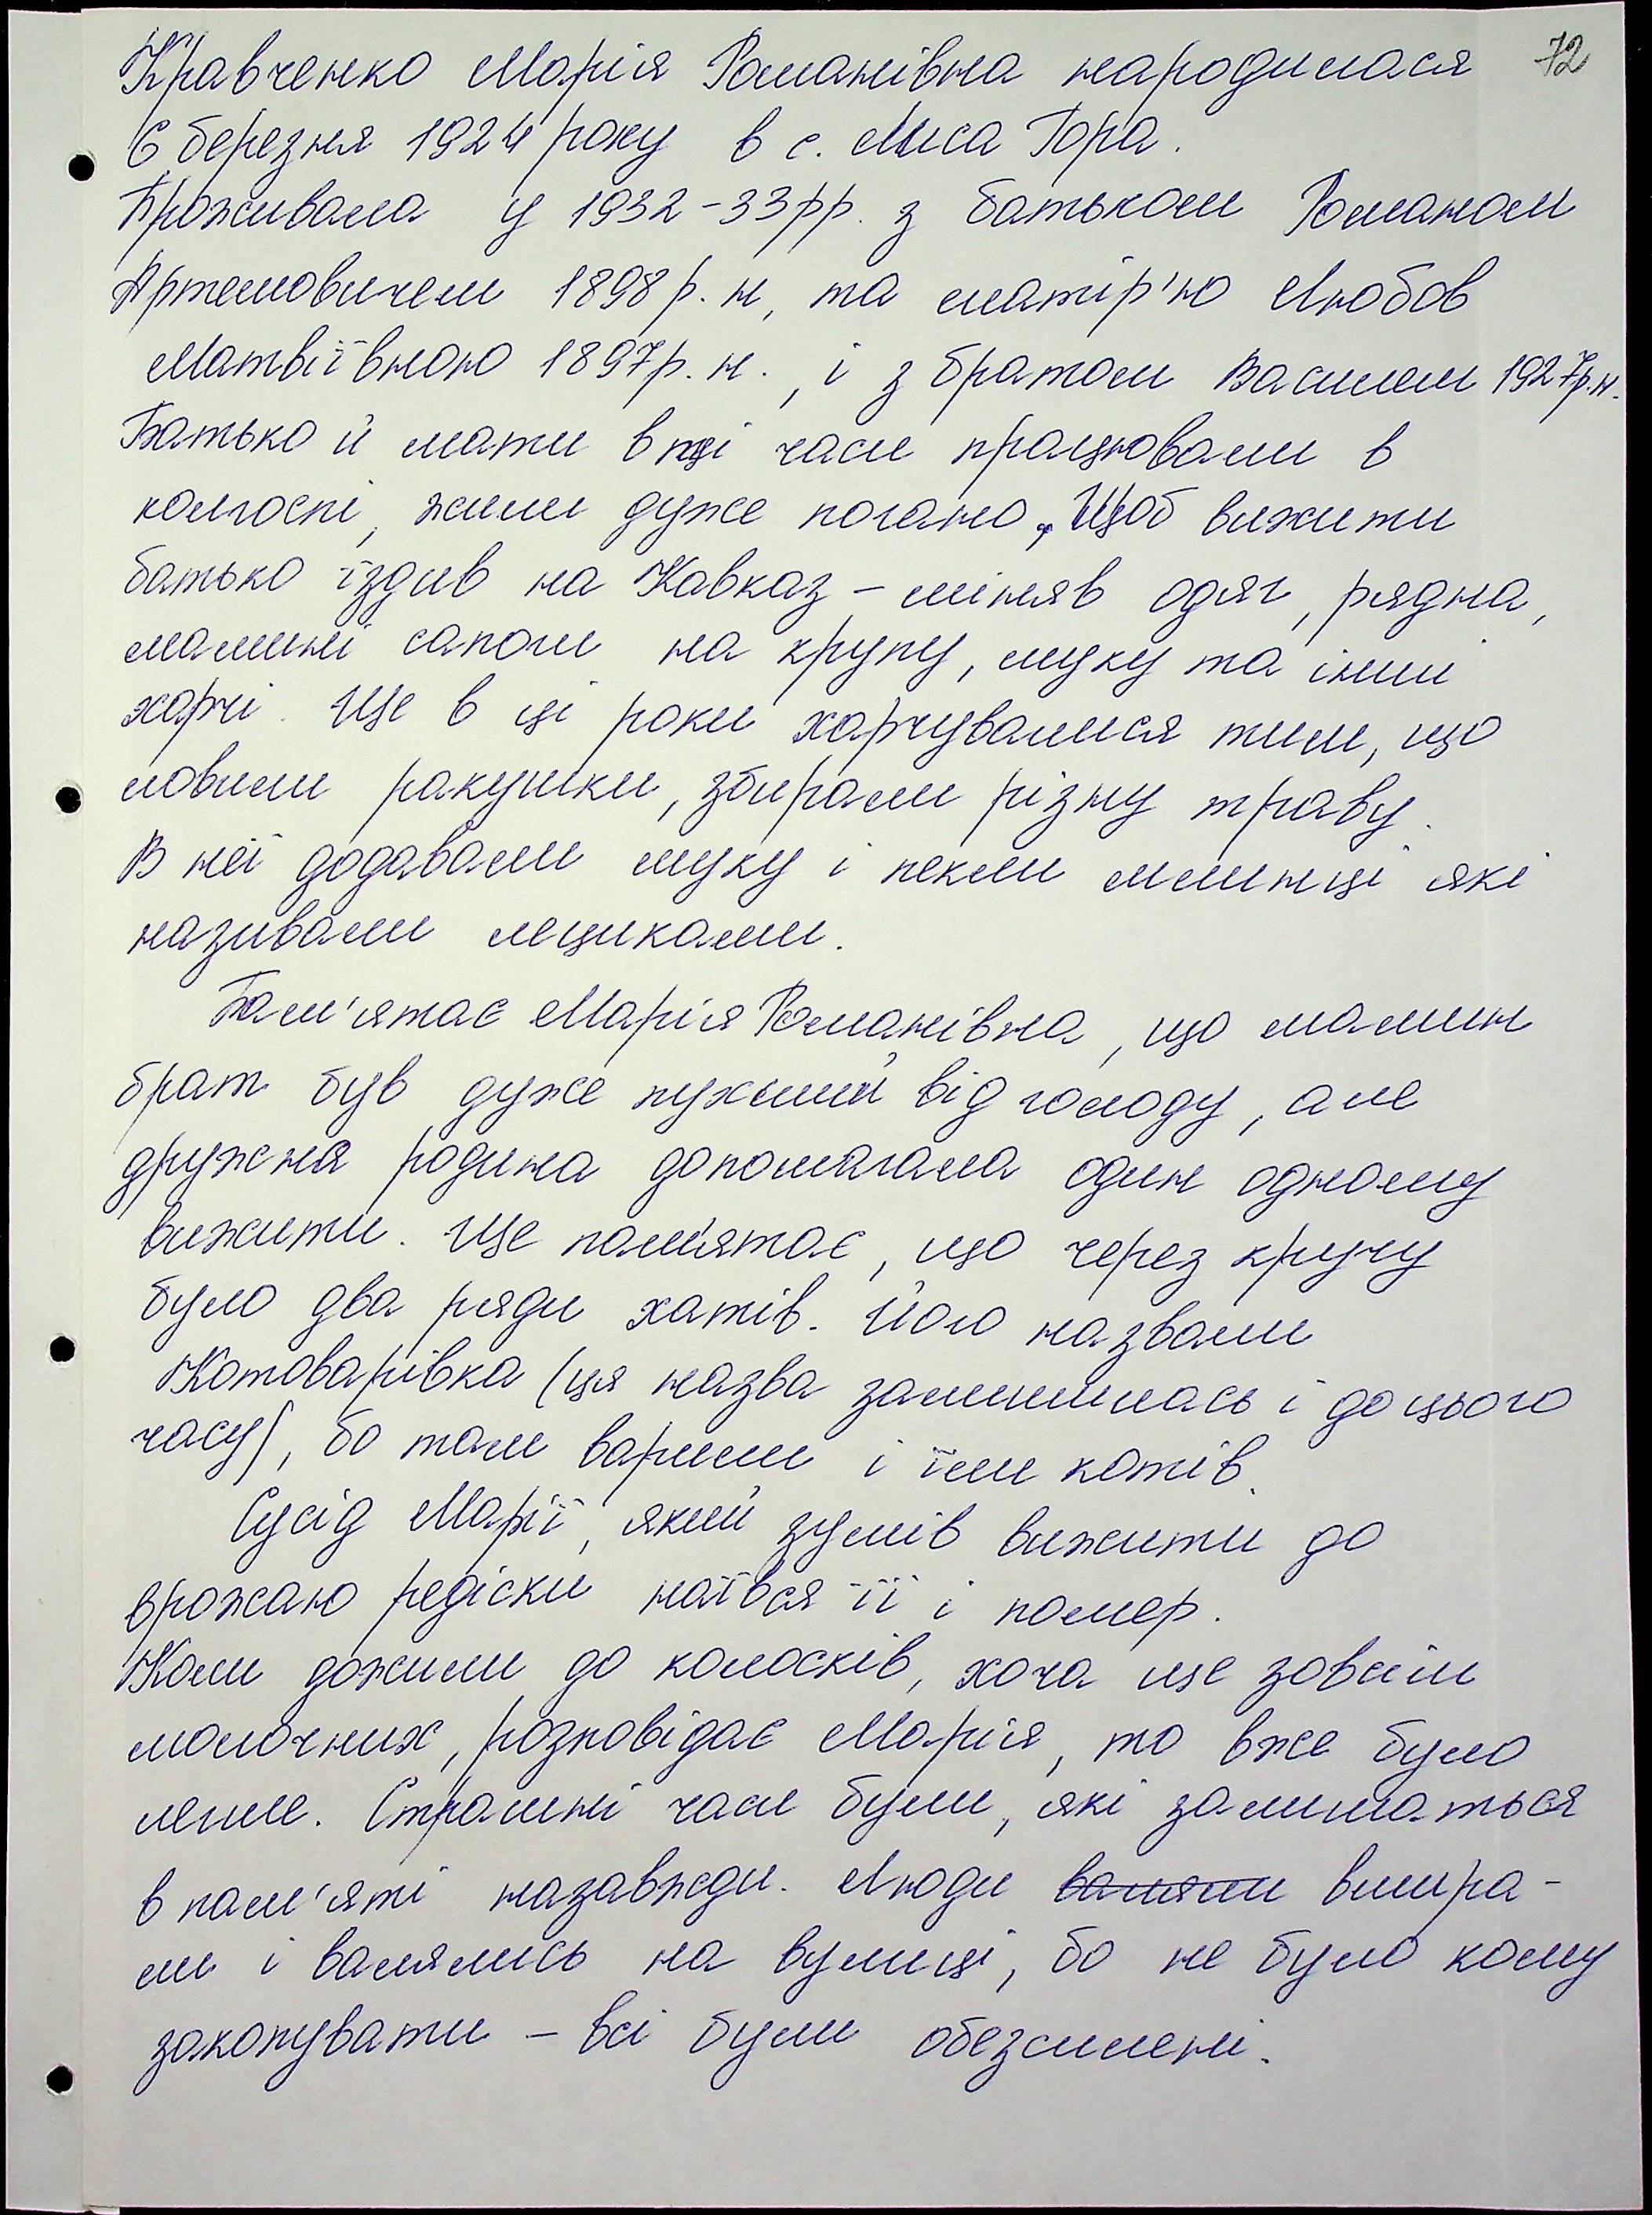 72
Кравченко Марія Романівна народилася
6 березня 1924 року в с. Лиса Гора.
Проживала у 1932-33рр. з батьком Романом
Артемовичем 1898 р. н, та матір'ю Любов
Матвіївною 1897р. н., і з братом Василем 1927р.н.
Батько й мати в ці часи працювали в
колгоспі, жили дуже погано. Щоб вижити
батько їздив на Кавказ – міняв одяг, рядна,
мамині сапоги на крупу, муку та інші
харчі. Ще в ці роки харчувалися тим, що
ловили ракушки, збирали різну траву.
В неї додавали муку і пекли млинці які
називали лециками.
Пам'ятає Марія Романівна, що мамин
брат був дуже пухлий від голоду, але
дружня родина допомагала один одному
вижити. Ще пам'ятає, що через кручу
було два ряди хатів. Його назвали
Котоварівка (ця назва залишилась і до цього
часу), бо там варили і їли котів.
Сусід Марії, який зумів вижити до
врожаю редіски наївся її і помер.
Коли дожили до колосків, хоча ще зовсім
молочних, розповідає Марія, то вже було
легше. Страшні часи були, які залишаться
в пам'яті назавжди. Люди валяли вмира-
ли і валялись на вулиці, бо не було кому
закопувати – всі були обезсилені.